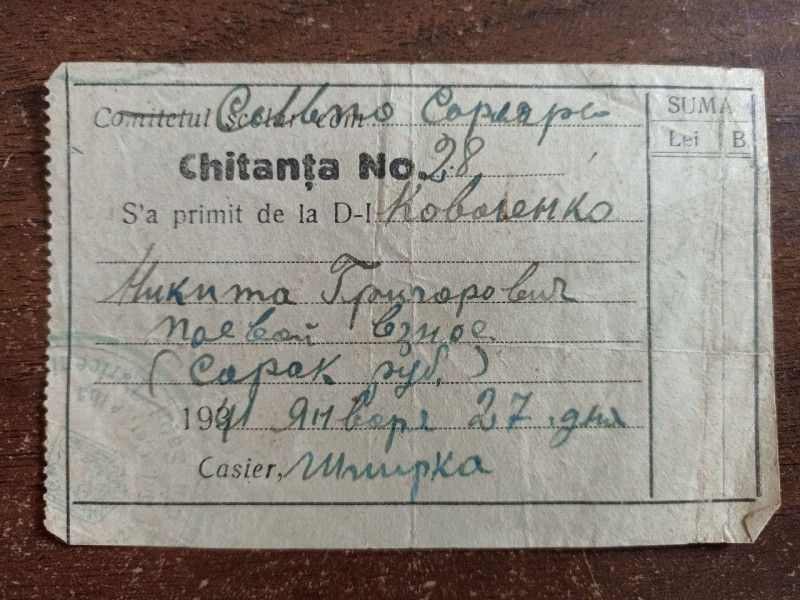 Comitetul școlar com Сельпо
SUMA
Lei B
Chitanța No. 28
S'a primit de la D-l Коваленко
Никита Григорович
паевой взнос
(сорок руб.)
1941 января 27 дня
Casier, Шпирка